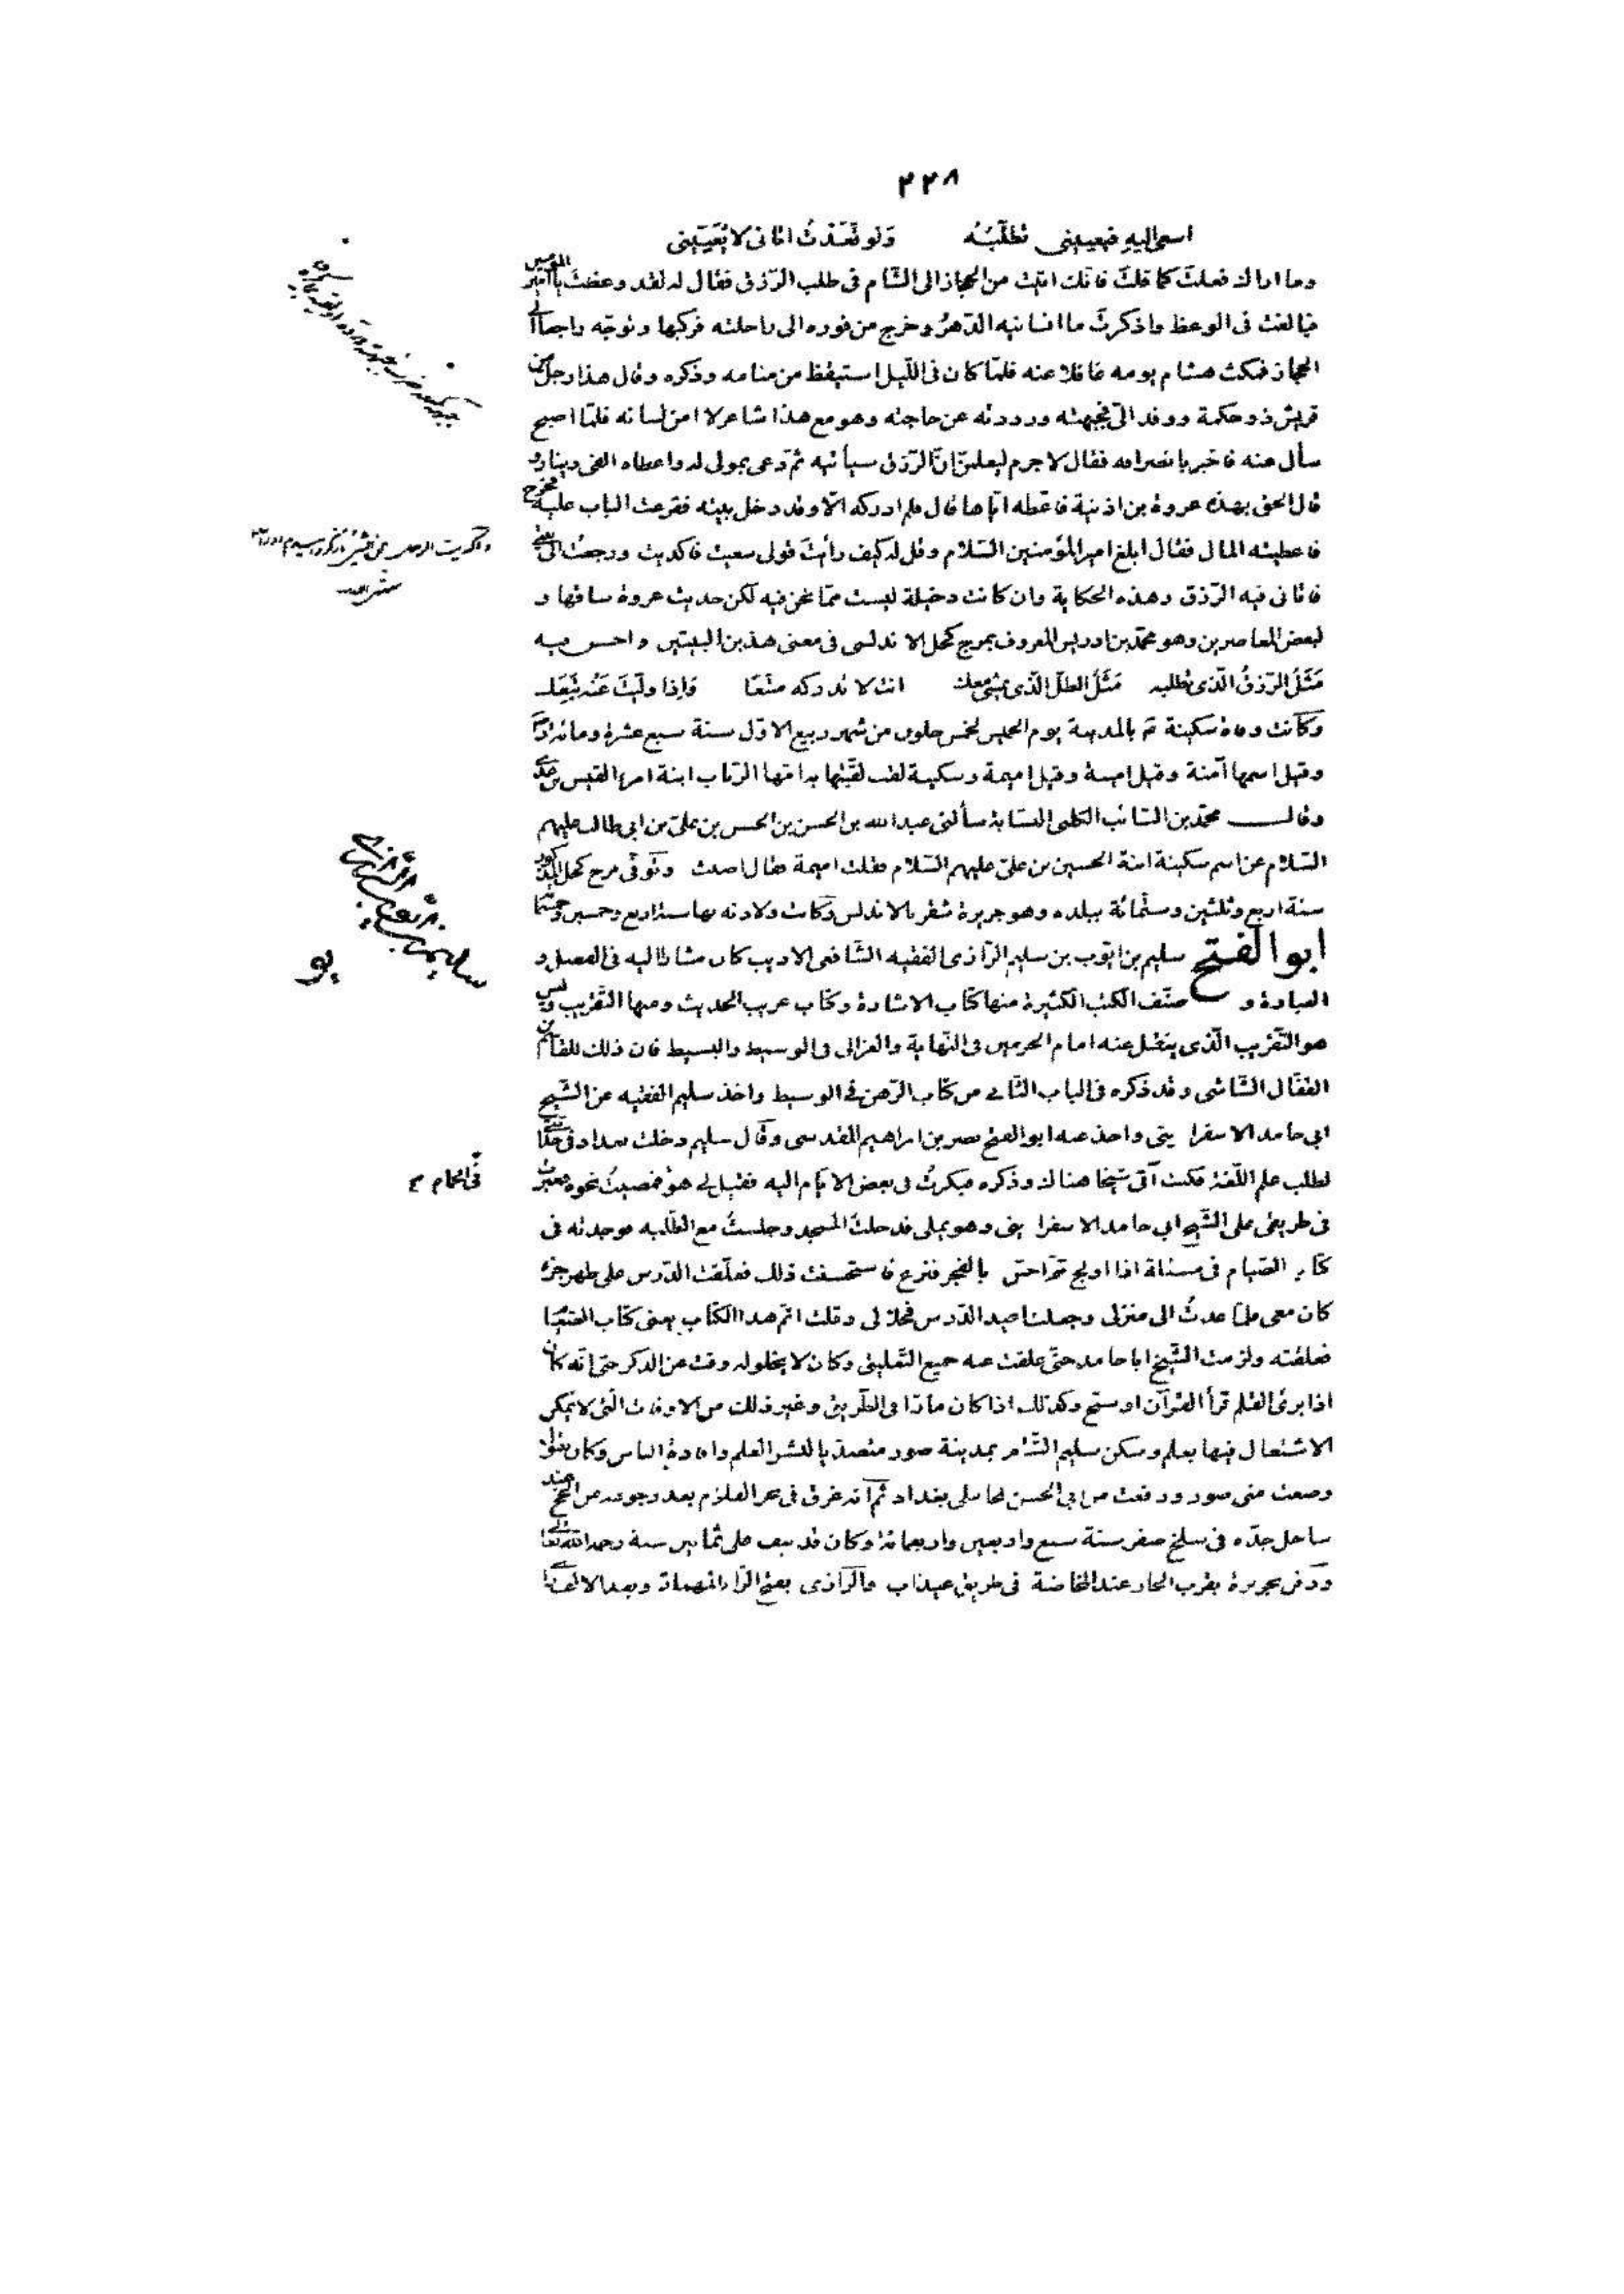 ٢٢٨
اسعى اليه فيعيينى تطلّبُه وَلو قَعَدْتُ اتانى لا يُعَيّينى
وما اراك فعلتَ كما قلتَ فانّك اتيت من الحجاز الى الشّام فى طلب الرّزق فقال له لقد وعظتَ يا امير المؤمنين
فبالغت فى الوعظ واذكرتَ ما انسانيه الدّهرُ وخرج من فوره الى راحلته فركبها وتوجّه راجعا الى
الحجاز فمكث هشام يومه غافلا عنه فلمّا كان فى اللّيل استيقظ من منامه وذكره وقال هذا رجل من
قريش ذو حكمة ووفد الىّ فجبهته ورددته عن حاجته وهو مع هذا شاعر لا امن لسانه فلمّا اصبح
سأل عنه فاخبر بانصرافه فقال لا جرم ليعلمنّ انّ الرّزق سيأتيه ثم دعى بمولى له واعطاه الفى دينار و
قال الحق بهذه عروة بن اذينة فاعطه ايّاها قال فلم ادركه الّا وقد دخل بيته فقرعت الباب عليه فخرج
فاعطيته المال فقال ابلغ امير المؤمنين السّلام وقل له كيف رأيتَ قولى سعيت فاكديت ورجعتُ الى بيتى
فاتانى فيه الرّزق وهذه الحكاية وان كانت دخيلة ليست ممّا نحن فيه لكن حديث عروة ساقها و
لبعض المعاصرين وهو محمّد بن ادريس المعروف بمرج كحل الاندلسى فى معنى هذين البيتين واحسن فيه
مَثَلُ الرّزقُ الّذى تطلبه مَثَلُ الظلّ الّذى يمشى معك انت لا تدركه متّبعًا وَاِذا ولّيتَ عَنْهُ تَبِعَك
وكانت وفاة سكينة بالمدينة يوم الخميس لخمس خلون من شهر ربيع الاوّل سنة سبع عشرة ومائة
وقيل اسمها آمنة وقيل امينة وقيل اميمة وسكينة لقب لقّبتها به امّها الرّباب ابنة امرء القيس بن عدى
وقال محمّد بن السّائب الكلبى النسّابة سألنى عبد الله بن الحسن بن الحسن بن علىّ بن ابى طالب عليهم
السّلام عن اسم سكينة ابنة الحسين بن علىّ عليهم السّلام فقلت اميمة فقال اصبت وتوفّى مرج كحل المذكور
سنة اربع وثلثين وستّمائة ببلده وهو جزيرة شقر بالاندلس وكانت ولادته بها سنة اربع وخمسين وخمسمائة
ابو الفتح سليم بن ايّوب بن سليم الرّازى الفقيه الشّافعى الاديب كان مشارا اليه فى الفضل و
العبادة و صنّف الكتب الكثيرة منها كتاب الاشارة وكتاب غريب الحديث ومنها التّقريب وليس
هو التّقريب الّذى ينقل عنه امام الحرمين فى النّهاية والغزالى فى الوسيط والبسيط فان ذلك للقاسم بن
القفّال الشّاشى وقد ذكره فى الباب الثّانى من كتاب الرّهن فى الوسيط واخذ سليم الفقيه عن الشّيخ
ابى حامد الاسفراينى واخذ عنه ابو الفتح نصر بن ابراهيم المقدسى وقال سليم دخلت بغداد فى حداثتى
لطلب علم اللّغة فكنت آتى شيخا هناك وذكره فبكرتُ فى بعض الايّام اليه فقيل لى هو فمضيتُ نحوه فعبرت
فى الحمّام
فى طريقى على الشّيخ ابى حامد الاسفراينى وهو يملى فدخلتُ المسجد وجلستُ مع الطّلبه فوجدته فى
كتاب الصّيام فى مسئلة اذا اولج ثمّ احسّ بالفجر فنزع فاستحسنت ذلك فعلّقت الدّرس على ظهر جزء
كان معى فلمّا عدتُ الى منزلى وجعلت اعيد الدّرس فحلا لى وقلت اتمّ هذا الكتاب يعنى كتاب الصّيام
فعلّقته ولزمت الشّيخ ابا حامد حتّى علّقت عنه جميع التّعليق وكان لا يخلو له وقت عن الذكر حتى انّه كان
اذا برى القلم قرأ القرآن او سبّح وكذلك اذا كان مارّا فى الطّريق وغير ذلك من الاوقات الّتى لا يمكن
الاشتغال فيها بعلم وسكن سليم الشّام بمدينة صور متصدّيا لنشر العلم وافادة الناس وكان يقول
وضعت منى صور ورفعت من ابى الحسن المحاملى بغداد ثم انّه غرق فى بحر القلزم بعد رجوعه من الحج عند
ساحل جدّه فى سلخ صفر سنة سبع واربعين واربعمائة وكان قد نيف على ثمانين سنة رحمه الله تعالى
ودفن بجزيرة بقرب الجار عند المخاضة فى طريق عيذاب والرّازى بفتح الرّاء المهملة وبعد الالف